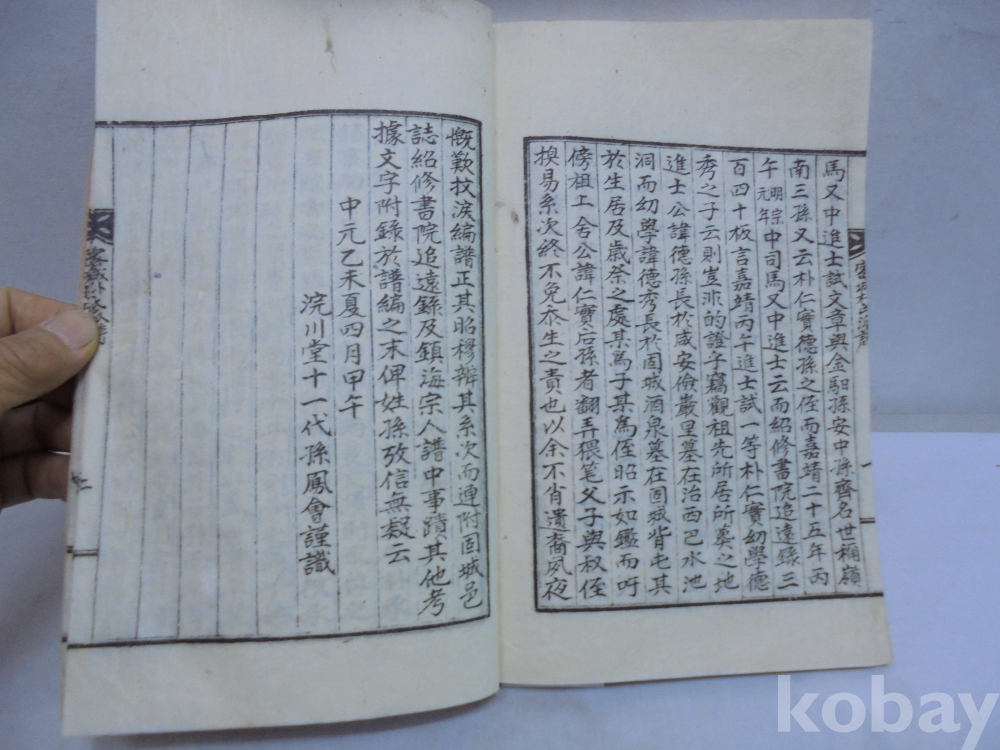 馬又中進士試文章與金馹孫安中孫齊名世稱嶺
南三孫又云朴仁實德孫之侄而嘉靖二十五年丙
午明宗元年中司馬又中進士云而紹修書院追遠錄三
百四十板言嘉靖丙午進士試一等朴仁實幼學德
秀之子云則豈非的證乎竊觀祖先所居所墓之地
進士公諱德孫長於咸安儉巖里墓在治西巴水池
洞而幼學諱德秀長於固城酒泉墓在固城背屯其
於生居及歲祭之處某爲子某爲侄昭示如鑑而吁
傍祖上舍公諱仁實后孫者翻弄猥笔父子與叔侄
換易系次終不免忝生之責也以余不肖遺裔夙夜
慨歎抆淚編譜正其昭穆辨其系次而連附固城邑
誌紹修書院追遠錄及鎭海宗人譜中事蹟其他考
據文字附錄於譜編之末俾姓孫攷信無疑云
中元乙未夏四月甲午
浣川堂十一代孫鳳會謹識
kobay